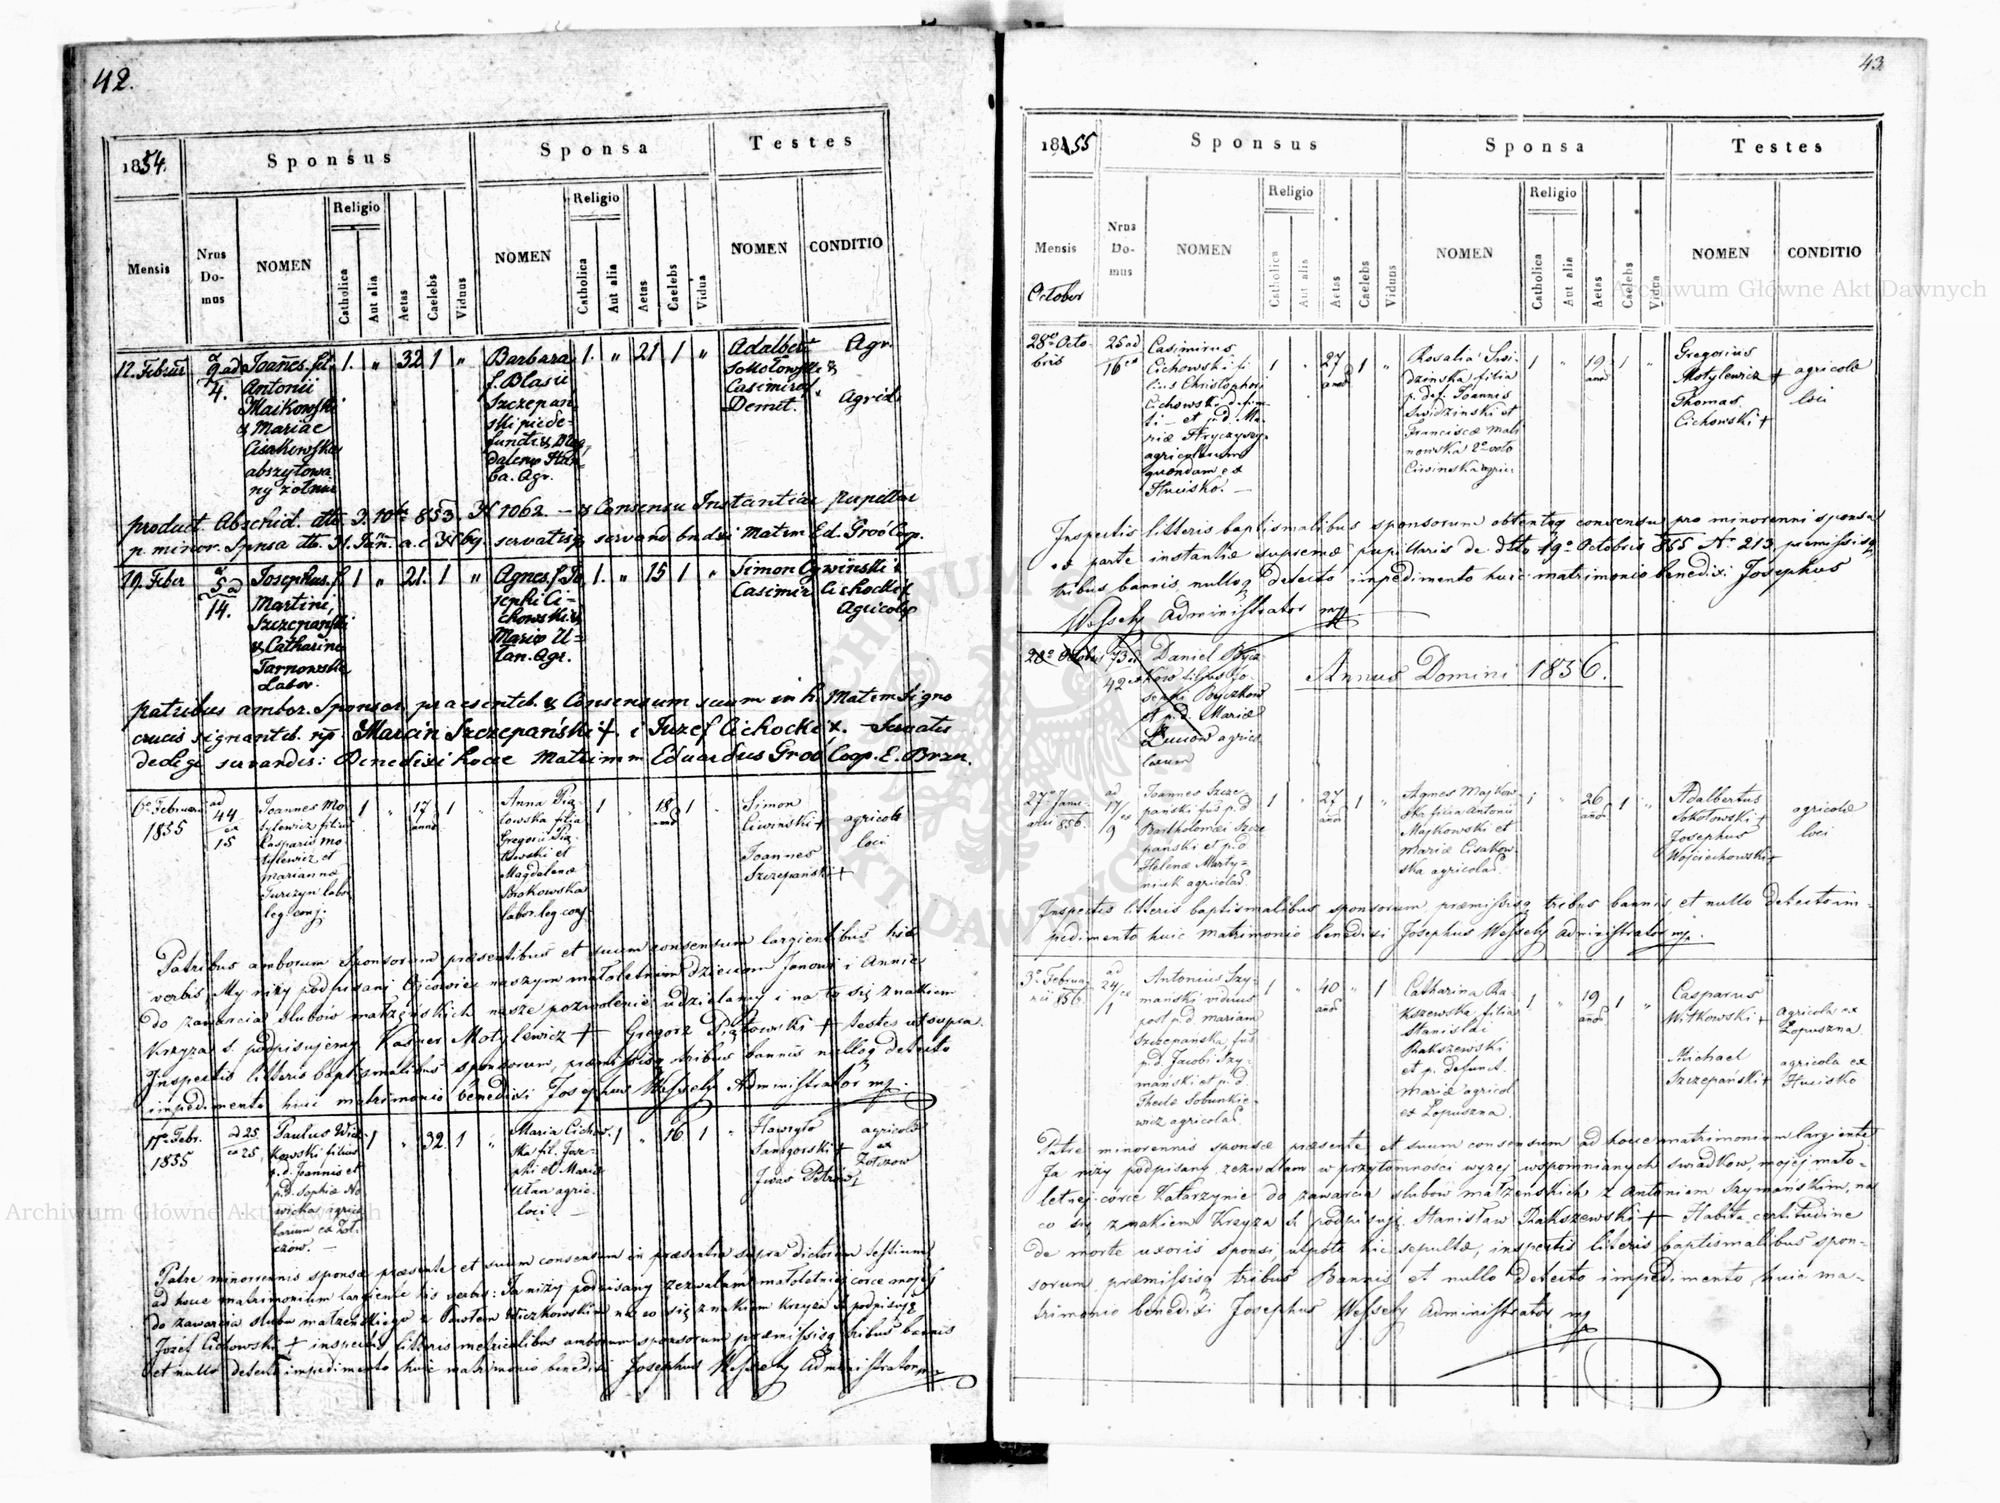 42.
1854.
Sponsus
Sponsa
Testes
Mensis
Nrus Do- mus
NOMEN
Religio
Catholica
Aut alia
Aetas
Caelebs
Viduus
NOMEN
Religio
Catholica
Aut alia
Aetas
Caelebs
Vidua
NOMEN
CONDITIO
12. Februar 9 ad 4.
Joannes fil.
Antonii
Maikowski
& Mariae
Cisakowska
abszytowa
ny żołnier
1. " 32 1 "
Barbara
f. Blasii
Szczepan
ski piede-
functi &
dalenæ
ba. Agr.
1. " 21 1 "
Adalbert
Sokołowski &
Casimirof
Demet.
Agr.
Agric.
product. Abschid. dto 3. 10br 853. N 1062. - & Consensu Instantiae pupillar
p. minor. Sponsa dto. 31. Jan. a. c. servatis servand. bndxi Matrim Ed. Groó Coop.
19. Feber
5 ad 14.
Josephus. f.
Martini,
Szczepański
& Catharine
Tarnowska
Labor.
1 " 21. 1 "
Agnes. f. Jo
sephi Ci-
chowski &
Mariæ U-
łan. Agr.
1. " 15 1 "
Simon Cywiński &
Casimir Cichockif
Agricolæ
patribus ambor. Sponsor. praesentib. & Consensum suum in h. Matrem signo
crucis signantib. np. Marcin Szczepański +. i Juzef Cichocki +. - Servatis
de lege servandis: Benedixi hocce Matrimm Eduardus Groó Coop. E. Brzn.
6o Februarii
1855
ad 44 ex 15
Joannes Mo
tylewicz filius
Casparis Mo
tylewicz et
Mariannæ
Turczyn labor
leg. conj.
1 " 17 annor 1 "
Anna Pią
towska filia
Gregorii Pią
towski et
Magdalenæ
Brokowska
labor. leg conj
1 " 18 annor 1 "
Simon
Ciwiński +
Joannes
Szczepański +
agricolæ
loci
Patribus amborum sponsorum præsentibus et suum consensum largientibus his
verbis My niży podpisani Ojcowie naszym małoletnim dzieciom Janowi i Annie
do zawarcia ślubów małżeńskich nasze pozwolenie udzielamy i na to się znakiem
Krzyża s. podpisujemy Kasper Motylewicz + Gregorz Piątowski + testes ut supra.
Inspectis litteris baptismalibus sponsorum, præmissisq tribus bannis nulloq detecto
impedimento huic matrimonio benedixi Josephus Wessely Administrator mp.
17o Febr.
1855
ad 25 ex 25
Paulus Wicz
kowski filius
p. d. Joannis et
p. d. Sophiæ No
wicka agrico
larum ex Żoł
czów.
1 " 32 1 "
Maria Cichow
ska fil. Jose
phi et Mariæ
Ułan agric.
loci.
1 " 16 1 "
Hawryło
Samgorski +
Iwas Petrów
agricolæ
ex
Żołczow
Patre minorennis sponsæ præsente et suum consensum in præsentia supra dictorum testium
ad hocce matrimonium largiente his verbis: Ja niży podpisany zezwalam małoletniej corce mojej
do zawarcia slubu małżeńskiego z Pawłem Wiczkowskim na co się znakiem krzyża s. podpisuję
Józef Cichowski + inspectis litteris metricalibus amborum sponsorum præmissisq tribus bannis
et nullo detecto impedimento huic matrimonio benedixi Josephus Wessely Administrator mp
43
1855
Sponsus
Sponsa
Testes
Mensis
October
Nrus Do- mus
NOMEN
Religio
Catholica
Aut alia
Aetas
Caelebs
Viduus
NOMEN
Religio
Catholica
Aut alia
Aetas
Caelebs
Vidua
NOMEN
CONDITIO
28o Octo
bris
25 ad 16
Casimirus
Cichowski fi
lius Christophori
Cichowski defun
ti et p. d. Ma
riæ Hryczyszyn
agricolarum
quondam ex
Hucisko.
1 " 27 annor 1 "
Rosalia Swi
dzinska filia
p. def. Joannis
Swidzinski et
Franciscæ Mali
nowska 2o voto
Ciwinska agric
1 " 19 annor 1 "
Gregorius
Motylewicz +
Thomas
Cichowski +
agricolæ
loci
Inspectis litteris baptismalibus sponsorum obtentoq consensu pro minorenni sponsa
ex parte instantiæ supremæ pupillaris de dtto 19o Octobris 855 No 213, præmissisq
tribus bannis, nulloq detecto impedimento huic matrimonio benedixi Josephus
Wessely Administrator mp
28o Octobris
73 ad 42
Daniel Bycz
kow filius Jo
sephi Byczkow
et p. d. Mariæ
agrico
larum
Annus Domini 1856.
27o Janu
arii 856.
ad 17/ex 9
Joannes Szcze
pański filius p. d
Bartholomæi Szcze
pański et p. d
Helenæ Marty-
niuk agricolar.
1 " 27 annor 1 "
Agnes Majkow
ska filia Antonii
Majkowski et
Mariæ Cisakow
ska agricolar.
1 " 26 annor 1 "
Adalbertus
Sokołowski +
Josephus
Wojciechowski +
agricolæ
loci
Inspectis litteris baptismalibus sponsorum præmissisq tribus bannis, et nullo detecto im-
pedimento huic matrimonio benedixi Josephus Wessely Administrator mp.
3o Februa
rii 856.
ad 24/ex 1
Antonius Szy
mański viduus
post p. d. Mariam
Szczepańska, filius
p. d. Jacobi Szy-
mański et p. d
Theclæ Sobunkie-
wicz agricolar.
1 " 40 annor " 1
Catharina Ra
kszewska, filia
Stanislai
Rakszewski
et p. defunct.
Mariæ agricol
ex Łopuszna.
1 " 19 annor 1 "
Casparus
Witkowski +
Michael
Szczepański +
agricola ex
Łopuszna
agricola ex
Hucisko
Patre minorennis sponsæ præsente et suum consensum ad hocce matrimonium largiente
Ja niży podpisany zezwalam w przytomności wyżej wspomnianych świadków, mojej mało-
letnej córce Katarzynie do zawarcia slubów małżenskich z Antoniem Szymańskim, na
co się znakiem Krzyża S. podpisuję. Stanisław Rakszewski + Habita certitudine
de morte uxoris sponsi, utpote hic sepultæ, inspectis literis baptismalibus spon-
sorum, præmissisq tribus Bannis, et nullo detecto impedimento, huic ma-
trimonio benedixi Josephus Wessely Administrator mp
Archiwum Główne Akt Dawnych
Archiwum Główne Akt Dawnych
ARCHIWUM GŁÓWNE AKT DAWNYCH